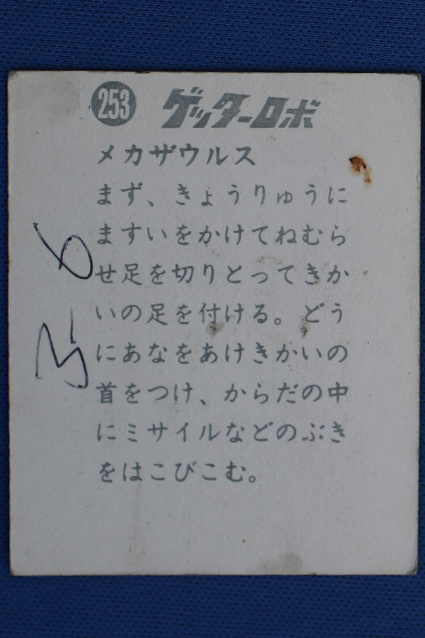 253 ゲッターロボ
メカザウルス
まず、きょうりゅうに
ますいをかけてねむら
せ足を切りとってきか
いの足を付ける。どう
にあなをあけきかいの
首をつけ、からだの中
にミサイルなどのぶき
をはこびこむ。